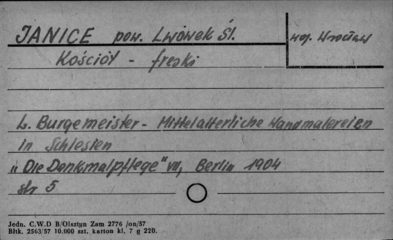 JANICE pow. Lwówek Śl.
woj. Wrocław
Kościół - freski
L. Burgemeister - Mittelalterliche Wandmalereien
in Schlesien
„Die Denkmalpflege" VI, Berlin 1904
str 5
Jedn. C.W.D B/Olsztyn Zam 2776 /on/57
Błtk. 2563/57 10.000 szt. karton kl. 7 g 220.